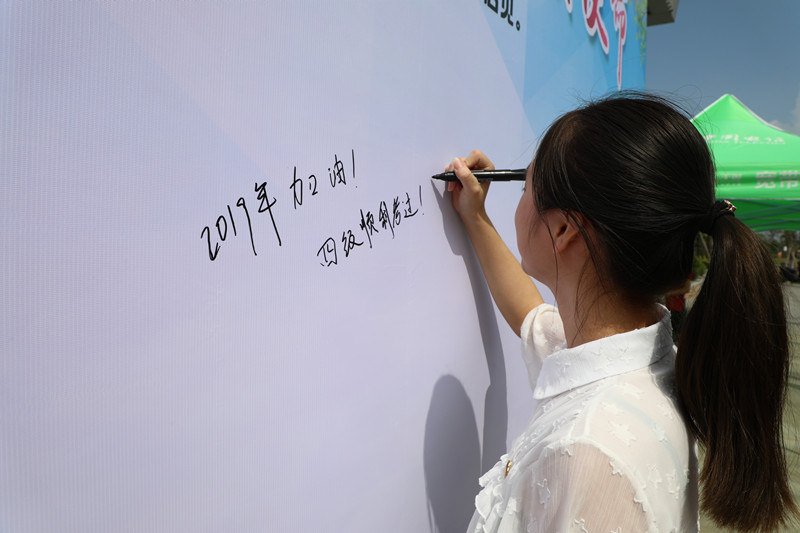 2019年 加油!
四级顺利考过!
宽带